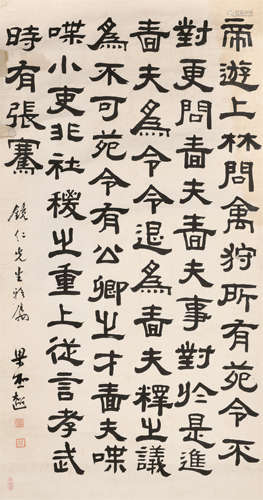 帝遊上林問禽狩所有苑令不
對更問嗇夫嗇夫事對於是進
嗇夫為令令退為嗇夫釋之議
為不可苑令有公卿之才嗇夫喋
喋小吏非社稷之重上從言孝武
時有張騫
鏡仁先生雅屬
梁啟超